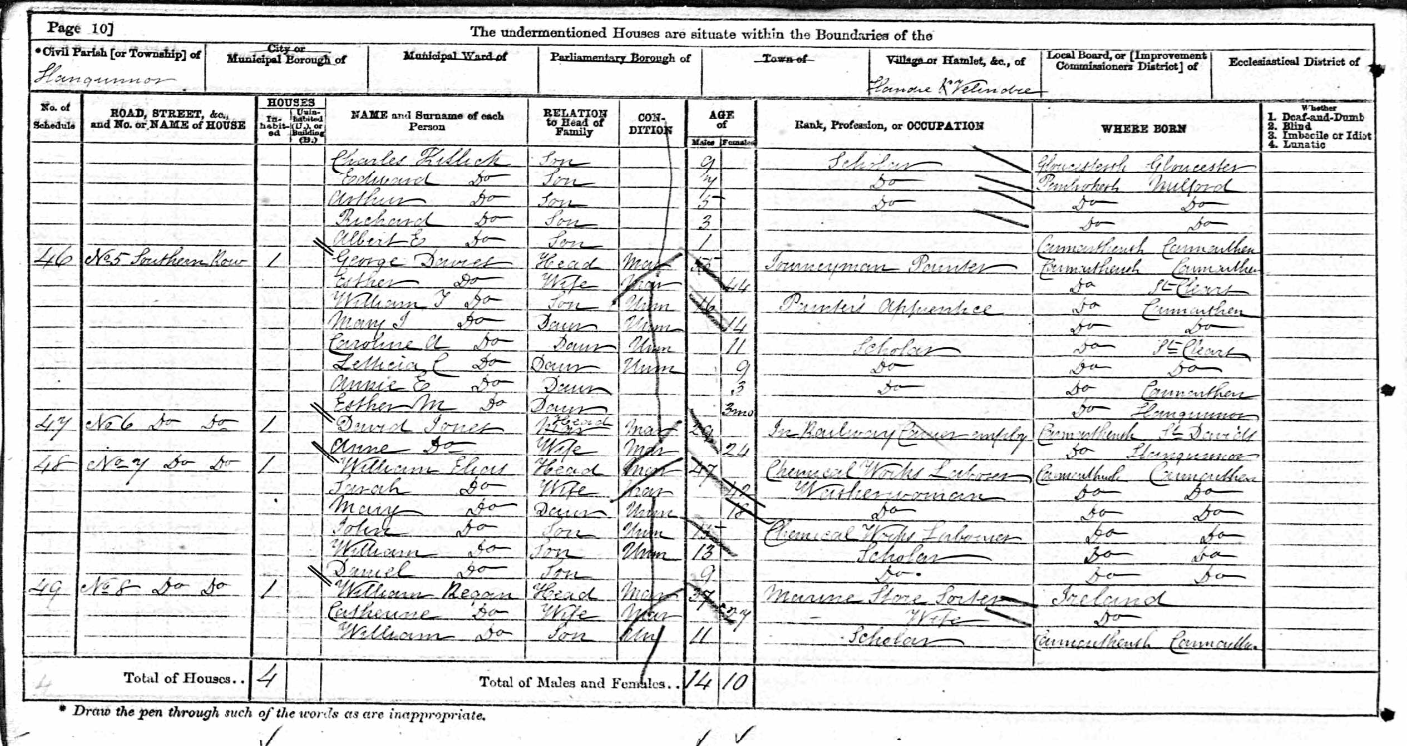 Page 10]
The undermentioned Houses are situate within the Boundaries of the
*Civil Parish [or Township] of City or Municipal Borough of Municipal Ward of Parliamentary Borough of Town of Village or Hamlet, &c., of Local Board, or [Improvement Commissioners District] of Ecclesiastical District of
Llangunnor Llandre & Velindre
No. of Schedule ROAD, STREET, &c., and No. or NAME of HOUSE HOUSES In-habit-ed Unin-habited (U.), or Building (B.) NAME and Surname of each Person RELATION to Head of Family CON-DITION AGE of Males Females Rank, Profession, or OCCUPATION WHERE BORN Whether 1. Deaf-and-Dumb 2. Blind 3. Imbecile or Idiot 4. Lunatic
Charles Son 9 Scholar Gloucestersh Gloucester
Edward Do Son 7 Do Pembrokesh Milford
Arthur Do Son 5 Do Do Do
Richard Do Son 3 Do Do
Albert E Do Son 1 Carmarthensh Carmarthen
46 No 5 Southern Row 1 George Davies Head Mar Journeyman Carmarthensh Carmarthen
Esther Do Wife Mar 44 Do St Clears
William J Do Son Unm 16 Apprentice Do Carmarthen
Mary J Do Daur Unm 14 Do Do
Caroline A Do Daur Unm 11 Scholar Do St Clears
Letticia C Do Daur Unm 9 Do Do Do
Annie E Do Daur 3 Do Do Carmarthen
Esther M Do Daur 3mo Do Llangunnor
47 No 6 Do Do 1 David Jones Head Mar 29 In Railway employ Carmarthensh St Davids
Anne Do Wife Mar 24 Do Llangunnor
48 No 7 Do Do 1 William Elias Head Mar 47 Chemical Works Labourer Carmarthensh Carmarthen
Sarah Do Wife Mar 42 Washerwoman Do Do
Mary Do Daur Unm 18 Do Do Do
John Do Son Unm 15 Chemical Works Labourer Do Do
William Do Son Unm 13 Scholar Do Do
Daniel Do Son 9 Do Do Do
49 No 8 Do Do 1 William Regan Head Mar 37 Marine Store Ireland
Catherine Do Wife Mar Wife Do
William Do Son Un 11 Scholar Carmarthensh Carmarthen
Total of Houses.. 4 Total of Males and Females.. 14 10
* Draw the pen through such of the words as are inappropriate.